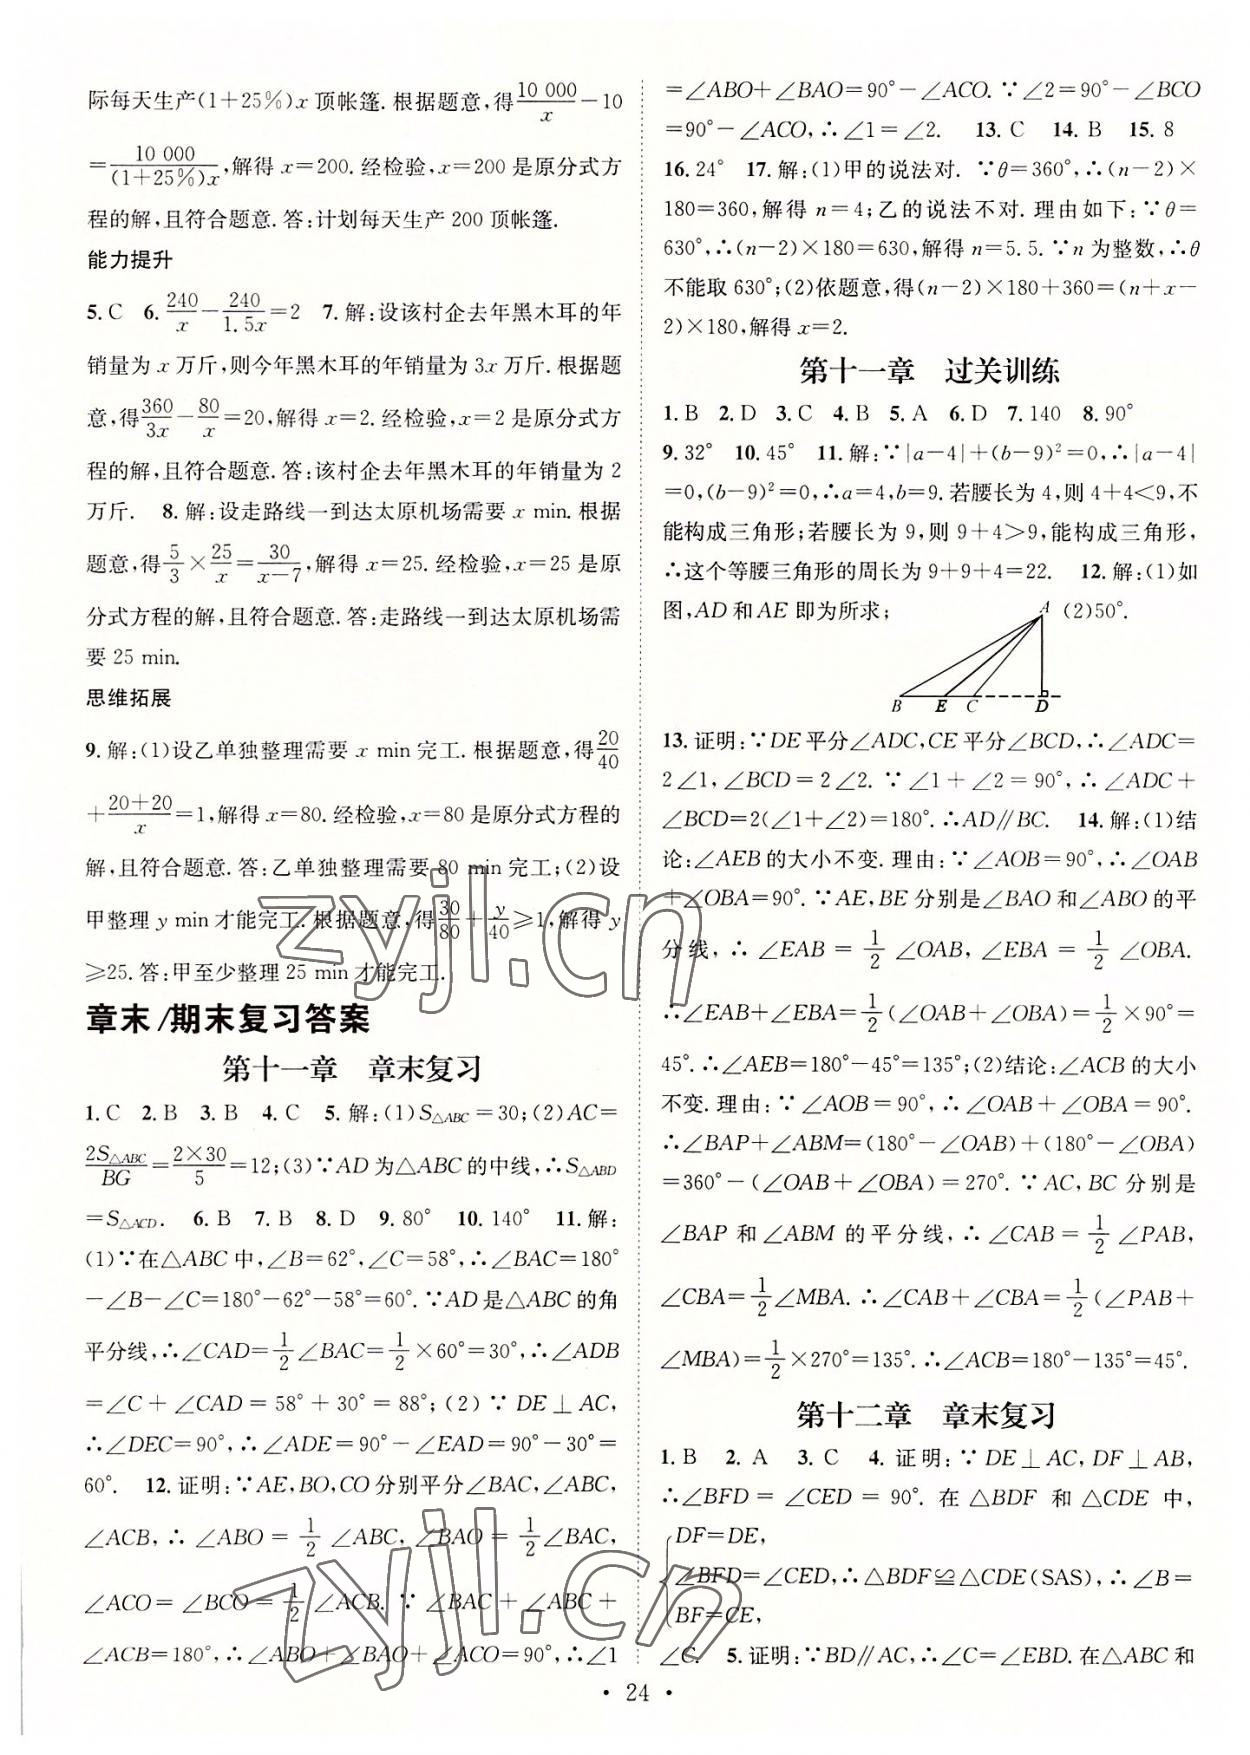 际每天生产(1+25%)x 顶帐篷. 根据题意,得10 000/x-10
=10 000/(1+25%)x,解得 x=200. 经检验,x=200 是原分式方
程的解,且符合题意. 答:计划每天生产 200 顶帐篷.
能力提升
5. C 6. 240/x-240/1.5x=2 7. 解:设该村企去年黑木耳的年
销量为 x 万斤,则今年黑木耳的年销量为 3x 万斤. 根据题
意,得360/3x-80/x=20,解得 x=2. 经检验,x=2 是原分式方
程的解,且符合题意. 答:该村企去年黑木耳的年销量为 2
万斤. 8. 解:设走路线一到达太原机场需要 x min. 根据
题意,得5/3×25/x=30/(x-7),解得 x=25. 经检验,x=25 是原
分式方程的解,且符合题意. 答:走路线一到达太原机场需
要 25 min.
思维拓展
9. 解:(1)设乙单独整理需要 x min 完工. 根据题意,得20/40
+(20+20)/x=1,解得 x=80. 经检验,x=80 是原分式方程的
解,且符合题意. 答:乙单独整理需要 80 min 完工;(2)设
甲整理 y min 才能完工. 根据题意,得30/80+y/40≥1,解得 y
≥25. 答:甲至少整理 25 min 才能完工.
章末/期末复习答案
第十一章 章末复习
1. C 2. B 3. B 4. C 5. 解:(1)S△ABC=30;(2)AC=
2S△ABC/BG=2×30/5=12;(3)∵AD 为△ABC 的中线,∴S△ABD
=S△ACD. 6. B 7. B 8. D 9. 80° 10. 140° 11. 解:
(1)∵在△ABC 中,∠B=62°,∠C=58°,∴∠BAC=180°
-∠B-∠C=180°-62°-58°=60°. ∵AD 是△ABC 的角
平分线,∴∠CAD=1/2∠BAC=1/2×60°=30°,∴∠ADB
=∠C+∠CAD=58°+30°=88°;(2)∵DE⊥AC,
∴∠DEC=90°,∴∠ADE=90°-∠EAD=90°-30°=
60°. 12. 证明:∵AE,BO,CO 分别平分∠BAC,∠ABC,
∠ACB,∴∠ABO=1/2∠ABC,∠BAO=1/2∠BAC,
∠ACO=∠BCO=1/2∠ACB. ∵∠BAC+∠ABC+
∠ACB=180°,∴∠ABO+∠BAO+∠ACO=90°,∴∠1
=∠ABO+∠BAO=90°-∠ACO. ∵∠2=90°-∠BCO
=90°-∠ACO,∴∠1=∠2. 13. C 14. B 15. 8
16. 24° 17. 解:(1)甲的说法对. ∵θ=360°,∴(n-2)×
180=360,解得 n=4;乙的说法不对. 理由如下:∵θ=
630°,∴(n-2)×180=630,解得 n=5.5. ∵n 为整数,∴θ
不能取 630°;(2)依题意,得(n-2)×180+360=(n+x-
2)×180,解得 x=2.
第十一章 过关训练
1. B 2. D 3. C 4. B 5. A 6. D 7. 140 8. 90°
9. 32° 10. 45° 11. 解:∵|a-4|+(b-9)²=0,∴|a-4|
=0,(b-9)²=0,∴a=4,b=9. 若腰长为 4,则 4+4<9,不
能构成三角形;若腰长为 9,则 9+4>9,能构成三角形,
∴这个等腰三角形的周长为 9+9+4=22. 12. 解:(1)如
图,AD 和 AE 即为所求; A (2)50°.
B E C D
13. 证明:∵DE 平分∠ADC,CE 平分∠BCD,∴∠ADC=
2∠1,∠BCD=2∠2. ∵∠1+∠2=90°,∴∠ADC+
∠BCD=2(∠1+∠2)=180°. ∴AD∥BC. 14. 解:(1)结
论:∠AEB 的大小不变. 理由:∵∠AOB=90°,∴∠OAB
+∠OBA=90°. ∵AE,BE 分别是∠BAO 和∠ABO 的平
分线,∴∠EAB=1/2∠OAB,∠EBA=1/2∠OBA.
∴∠EAB+∠EBA=1/2(∠OAB+∠OBA)=1/2×90°=
45°. ∴∠AEB=180°-45°=135°;(2)结论:∠ACB 的大小
不变. 理由:∵∠AOB=90°,∴∠OAB+∠OBA=90°.
∴∠BAP+∠ABM=(180°-∠OAB)+(180°-∠OBA)
=360°-(∠OAB+∠OBA)=270°. ∵AC,BC 分别是
∠BAP 和∠ABM 的平分线,∴∠CAB=1/2∠PAB,
∠CBA=1/2∠MBA. ∴∠CAB+∠CBA=1/2(∠PAB+
∠MBA)=1/2×270°=135°. ∴∠ACB=180°-135°=45°.
第十二章 章末复习
1. B 2. A 3. C 4. 证明:∵DE⊥AC,DF⊥AB,
∴∠BFD=∠CED=90°. 在△BDF 和△CDE 中,
DF=DE,
∠BFD=∠CED,∴△BDF≌△CDE(SAS),∴∠B=
BF=CE,
∠C. 5. 证明:∵BD∥AC,∴∠C=∠EBD. 在△ABC 和
• 24 •
zyjl.cn
zyjl.cn